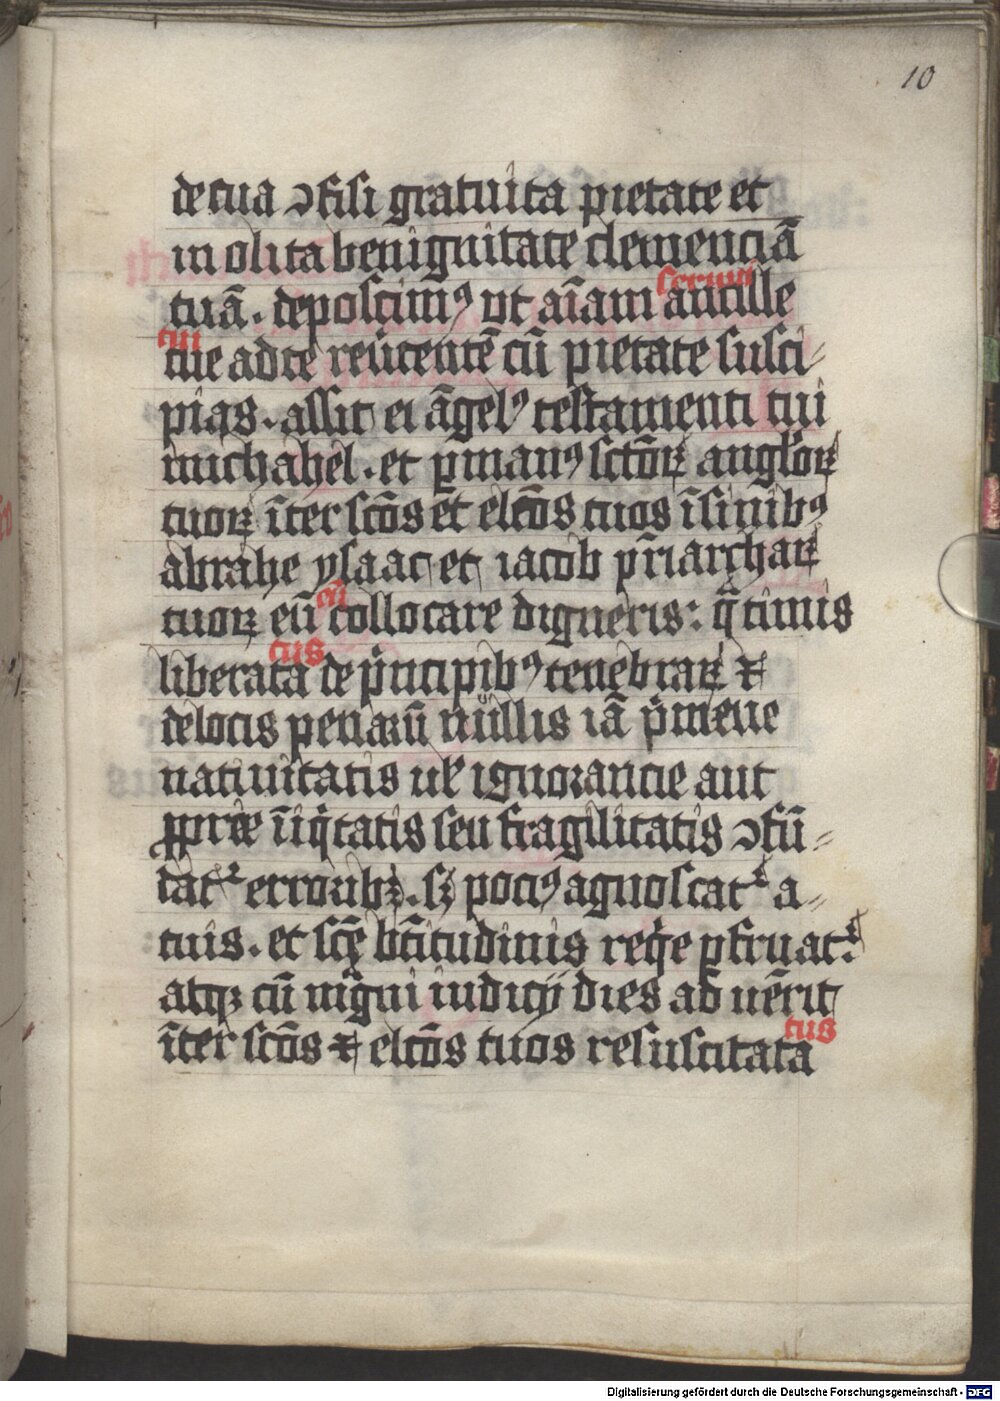 10
de tua ↄfisi gratuita pietate et
in olita benignitate clemenciā
tuā. deposcimꝰ vt aīam ancille
serui
tui
tue ad te reu̓tentē cū pietate susci⸗
pias. assit ei āgelꝰ testamenti tui
michahel. et ꝑ manꝰ sctōꝝ anglōꝝ
tuoꝝ īter scōs et elcōs tuos ī sinibꝰ
abrahe ysaac et iacob pr̄iarchaꝝ
eū
tuoꝝ eū collocare digneris: q̄tinus
tus
liberata de pͥncipibꝰ tenebraꝝ ⁊
de locis penarū nullis iā pͥmeue
natiuitatis ul̓ ignorancie aut
ꝓprie īiqͥtatis seu fragilitatis ↄfū⸗
dat᷑ erroribꝫ. sꝫ pociꝰ agnoscat᷑ a⸗
tuis. et scē btītudinis reqͥe ꝑfruat᷑.
atqꝫ cū mgͣni iudicij dies aduēit
tus
īter scōs ⁊ elcōs tuos resuscitata
Digitalisierung gefördert durch die Deutsche Forschungsgemeinschaft - DFG